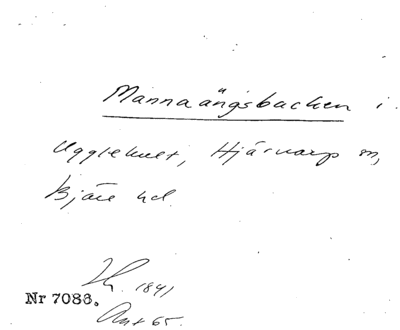 Mannaängsbacken i
Ugglehult, Hjärnarp sn,
Bjäre hd.
1841
Nr 7088.
Ant 65.